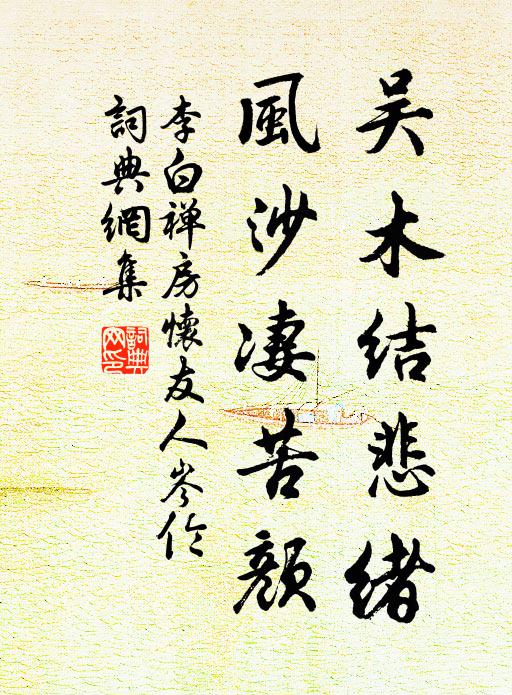 吴木結悲緒
風沙凄苦顏
李白禅房懷友人岑伦
詞典網集
詞典网印